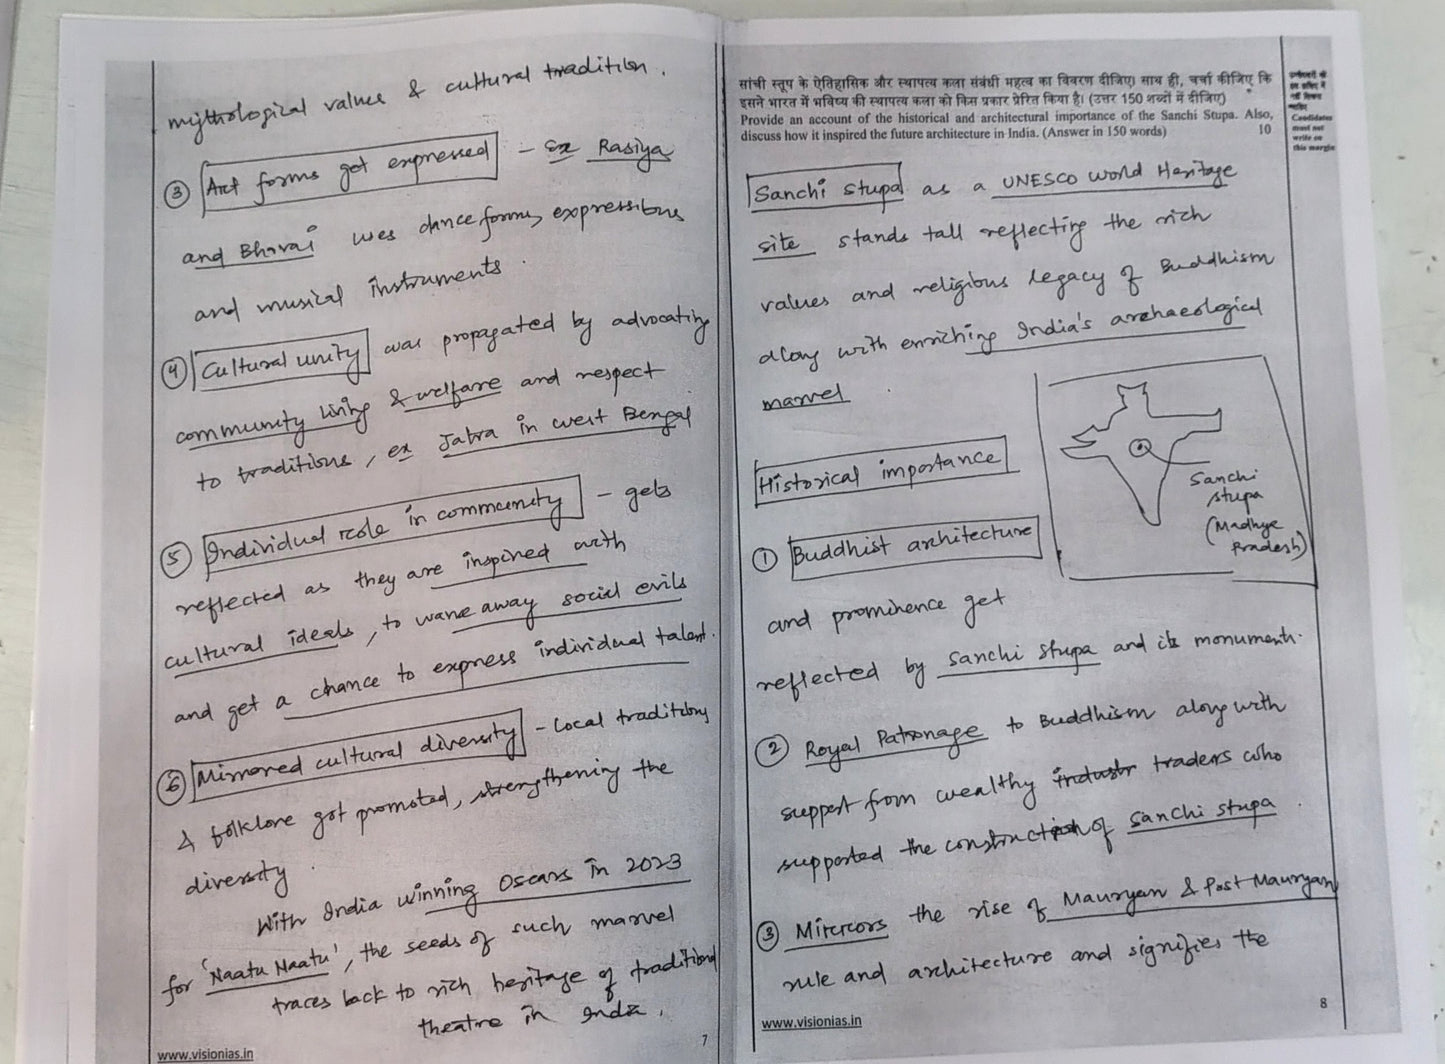 mythological values & cultural tradition.
③ Art forms get expressed - Ex Rasiya
and Bhavai uses dance forms, expressions
and musical instruments.
④ Cultural unity was propagated by advocating
community living & welfare and respect
to traditions, ex Jatra in west Bengal
⑤ Individual role in community - gets
reflected as they are inspired with
cultural ideals, to wane away social evils
and get a chance to express individual talent.
⑥ Mirrored cultural diversity - Local traditions
& folklore got promoted, strengthening the
diversity.
With India winning Oscars in 2023
for 'Naatu Naatu', the seeds of such marvel
traces back to rich heritage of traditional
theatre in India.
7
www.visionias.in
सांची स्तूप के ऐतिहासिक और स्थापत्य कला संबंधी महत्व का विवरण दीजिए। साथ ही, चर्चा कीजिए कि
इसने भारत में भविष्य की स्थापत्य कला को किस प्रकार प्रेरित किया है। (उत्तर 150 शब्दों में दीजिए)
Provide an account of the historical and architectural importance of the Sanchi Stupa. Also,
discuss how it inspired the future architecture in India. (Answer in 150 words) 10
उम्मीदवारों को
इस हाशिए में
नहीं लिखना
चाहिए
Candidates
must not
write on
this margin
Sanchi stupa as a UNESCO World Heritage
site stands tall reflecting the rich
values and religious legacy of Buddhism
along with enriching India's archaeological
marvel.
Sanchi
stupa
(Madhya
Pradesh)
Historical importance
① Buddhist architecture
and prominence get
reflected by Sanchi stupa and its monument.
② Royal Patronage to Buddhism along with
support from wealthy industr traders who
supported the construction of Sanchi stupa.
③ Mirrors the rise of Mauryan & Post Mauryan
rule and architecture and signifies the
8
www.visionias.in